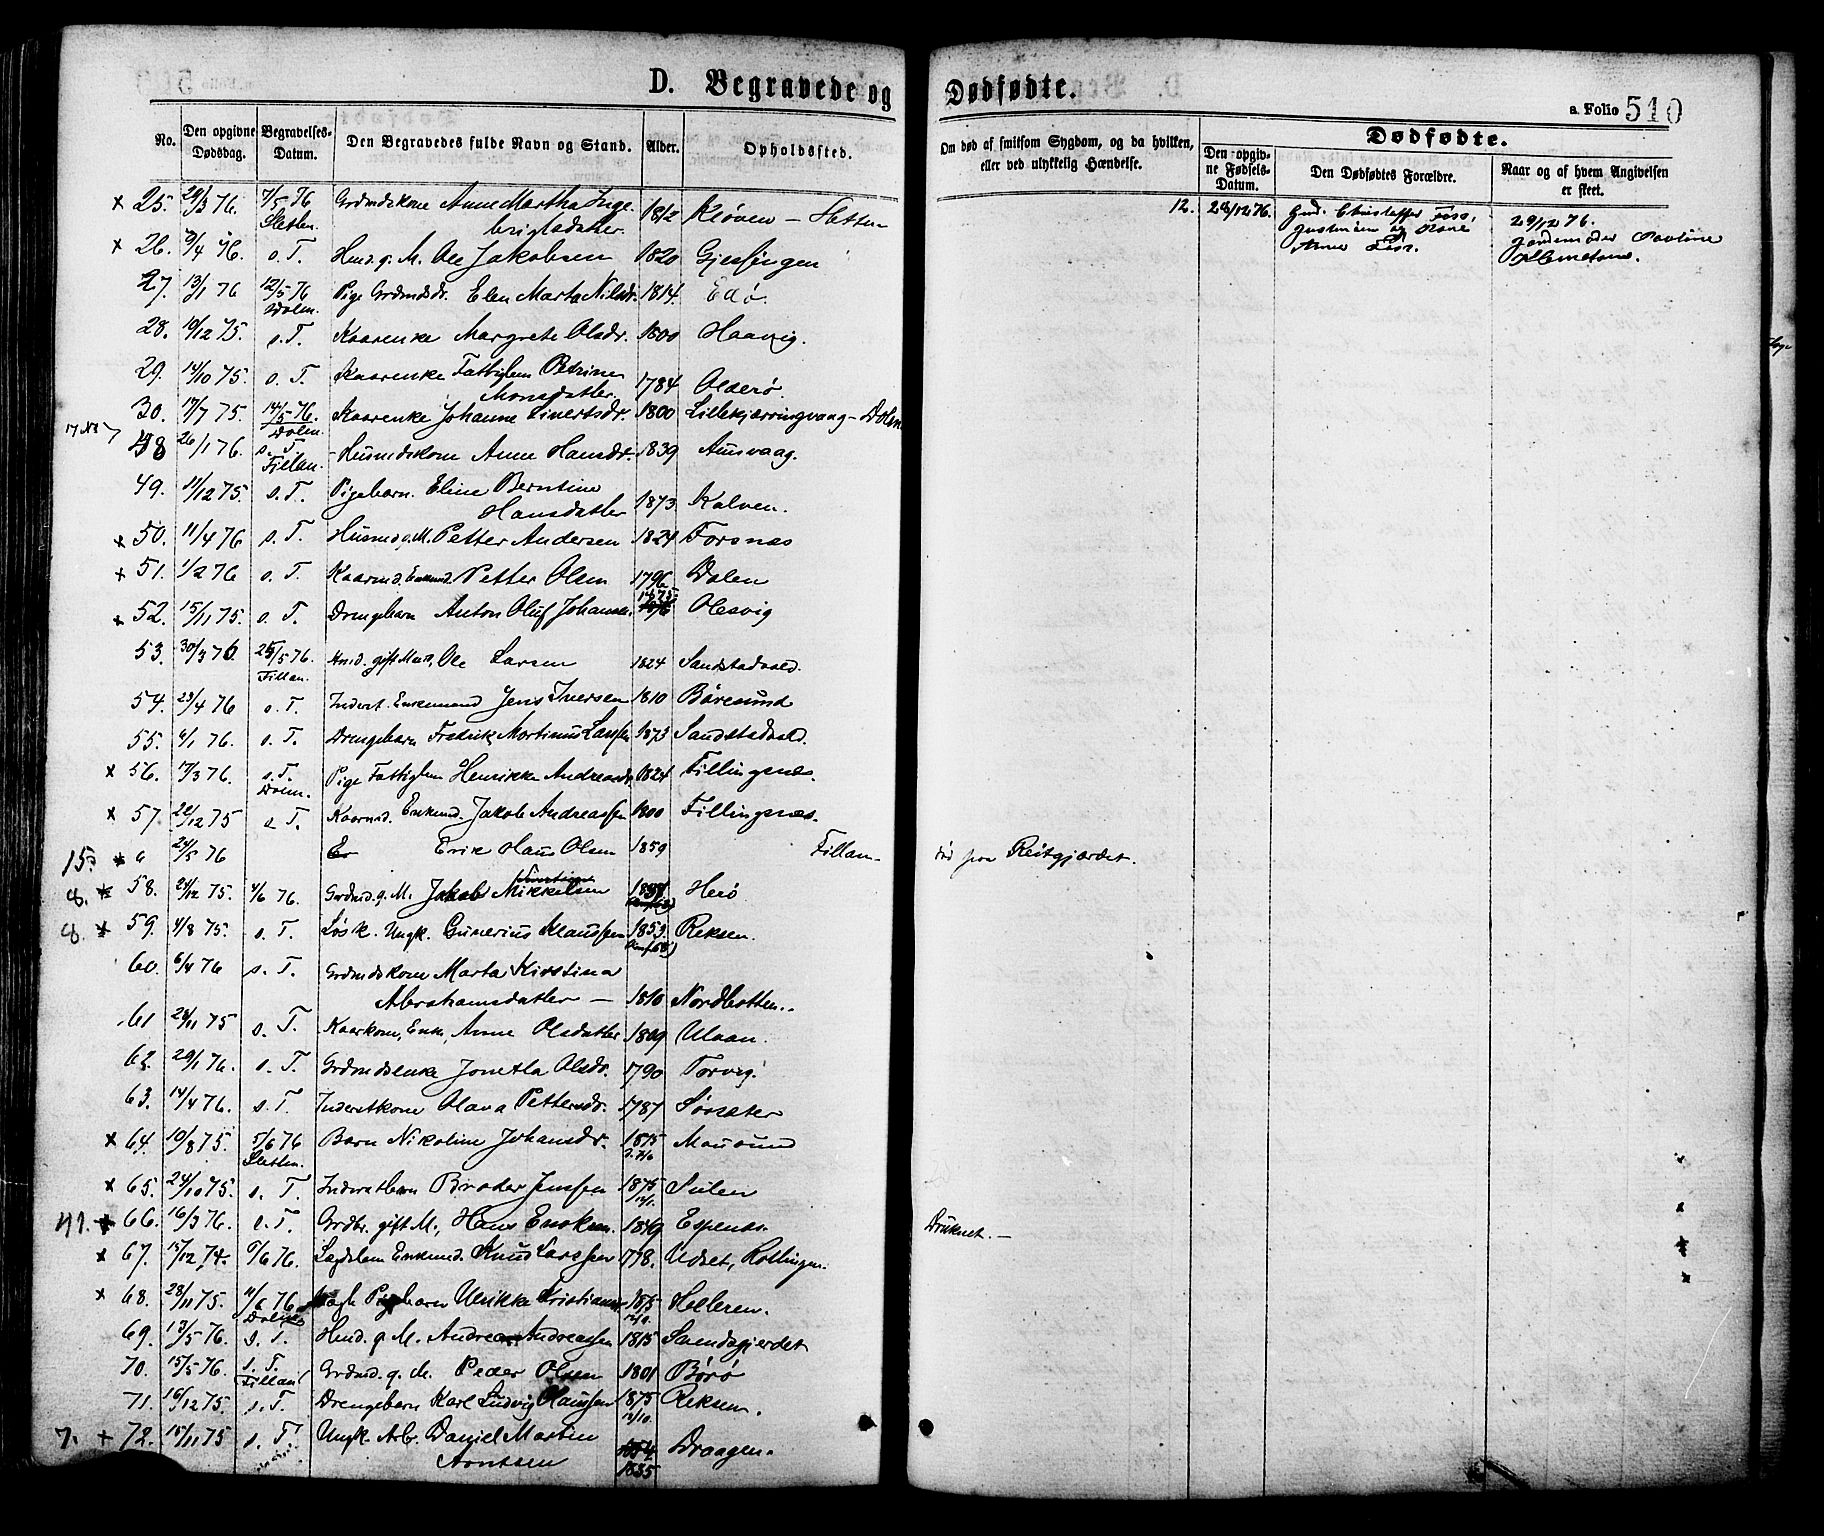 D. Begravede og Dødfødte.
a. Folio 510
No.
Den opgivne Dødsdag.
Begravelses-Datum.
Den Begravedes fulde Navn og Stand.
Alder.
Opholdssted.
Om død af smitsom Sygdom, og da hvilken, eller ved ulykkelig Hændelse.
Dødfødte.
Den opgivne Fødsels-Datum.
Den Dødfødtes Forældre.
Naar og af hvem Angivelsen er skeet.
× 25. 76. 7/5 76 Sletten Grdmdskone Anne Martha Inge- 1812 Kløven – Sletten
brigtsdatter.
12. 76. Christoffer Foss, 29/12 76.
Anne
× 26. 9/4 76. s. T. Husmd. g. M. Ole Jakobsen 1820 Gjessingen
27. 13/1 76 12/5 76 Dolm. Pige Grdmdsdr. Elen Marta Nilsdr. 1814. Edø.
28. 19/12 75. s. T. Kaarenke Margrete Olsdr. 1800 Haavig.
29. 14/10 75. s. T. Kaarenke Fattiglem Petrine
Monsdatter. 1784 Olderø
30. 17/7 75. 14/5 76. Dolm. Kaarenke Johanne Sivertsdr. 1800 Lillekjærringvaag – Dolm
48 26/1 76. s. T. Fillan. Husmdskone Anne Hansdr. 1839 Aunvaag.
49. 11/12 75. s. T. Pigebarn. Eline Berntine
Hansdatter 1873 Kalven.
× 50. 11/4 76 s. T. Husmd g. M. Petter Andersen 1824 Forsnæs
× 51. 1/2 76 s. T. Kaarmd. Enkemd. Petter Olsen 1796 Dalen
× 52. 15/11 75. s. T. Drengebarn Anton Oluf Johansen. Olesvig
53. 30/3 76. 25/5 76. Fillan. Husmd. gift Mand, Ole Larsen 1824 Sandstadvald.
54. 23/4 76 s. T. Inderst. Enkemand Jens Iversen 1810 Børøsund
55. 6/1 76. s. T. Drengebarn Fredrik Mortinus Larssen 1873 Sandstadvald.
× 56. 17/3 76. s. T. Dolm. Pige Fattiglem Henrikke Andreasdr. 1824 Fillingsnæs.
× 57. 22/12 75 s. T. Kaarmd. Enkemd. Jakob Andreassen 1800 Fillingsnæs.
15. × a 24/5 76 Erik Olsen 1859 Fillan – død paa Reitgjærdet.
8. × 58. 24/12 75. 4/6 76. Grdmd. g. M. Jakob Mikkelsen Herø
8. × 59. 4/8 75. s. T. Løsk. Ungk. Gunerius Klaussen 1853. Reksen.
60. 6/4 76 s. T. Grdmdskone Marta Kirstina
Abrahamsdatter — 1810 Nordbotten.
61 28/11 75 s. T. Kaarkone, Enke, Anne Olsdatter 1809 Ulvan.
62. 29/1 76. s. T. Grdmdsenke Jonetta Olsdr. 1790 Torvig.
63. 14/4 76. s. T. Inderstkone Olava Pettersdr. 1787 Sørsæter
× 64. 19/8 75. 5/6 76 Sletten. Barn Nikoline Johansdr. 1875 Mausund
× 65. 24/10 75. s. T. Inderstbarn Broder Jenssen 1875 Sulen
41. × 66. 16/3 76. s. T. Grdbr. gift M., Hans 1849 Druknet. –
× 67. 15/12 74. 6/6 76. Lægdslem Enkemd. Knud Larssen 1778. Udset, Kollingen.
× 68. 28/11 75. 11/6 76 Dolm Pigebarn Ulrikke Kristiansdr. 1875 Helleren.
69. 13/5 76. s. T. Husmd. g. M. Andreas Andreassen 1815 Svendsgjerdet
70. 15/5 76. s. T. Fillan Grdmd. g. M. Peder Olsen 1801 Børø
71. 16/12 75. s. T. Drengebarn Karl Ludvig Klaussen 1875 12/10. Reksen.
7. × 72. 15/11 75 s. T. Ungk. Arb. Daniel Martin
Arntsen 1835 Draagen.